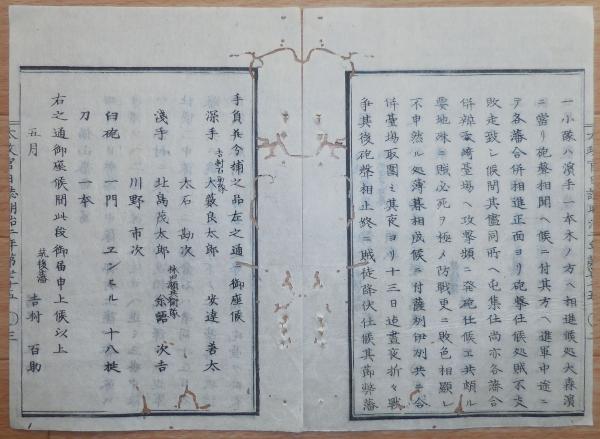 一小隊ハ濱手一本木ノ方ヘ相進候処大森濱
ニ當リ砲擊相聞ヘ候ニ付其方ヘ進軍中途ニ
テ各藩合併相進正面ヨリ砲擊仕候処賊不支
敗走致シ候間其儘同所ヘ屯集仕尚亦各藩合
併辨天﨑臺場ヘ攻擊頻ニ発砲仕候ヱ共頗ル
要地殊ニ賊必死ヲ極メ防戰更ニ敗色相顯レ
不申然ル処薄暮相成候ニ付薩刕伊刕共ニ合
併臺場取圍ミ其夜ヨリ十三日迠晝夜折々戰
爭其後砲聲相止終ニ賊徒降伏仕候其節弊藩
手負幷分捕之品左之通ニ御座候
深手 大藪良太郎 安達善太
大石勘次
淺手 北島茂太郎 余語次吉
川野市次
臼砲 一門 ヱンヒール 十八挺
刀 一本
右之通御座候間此段御届申上候以上
五月 筑後藩 吉村百助
太政官日誌明治二年第七十五 〇三